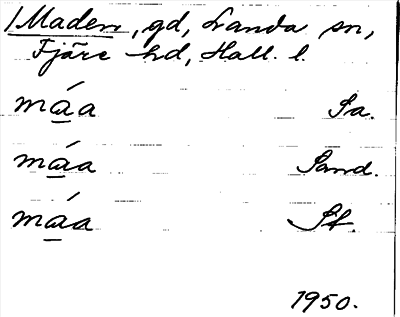 Maden, gd, Landa sn,
Fjäre hd, Hall. l.
máa Sa.
máa Sand.
máa St.
1950.